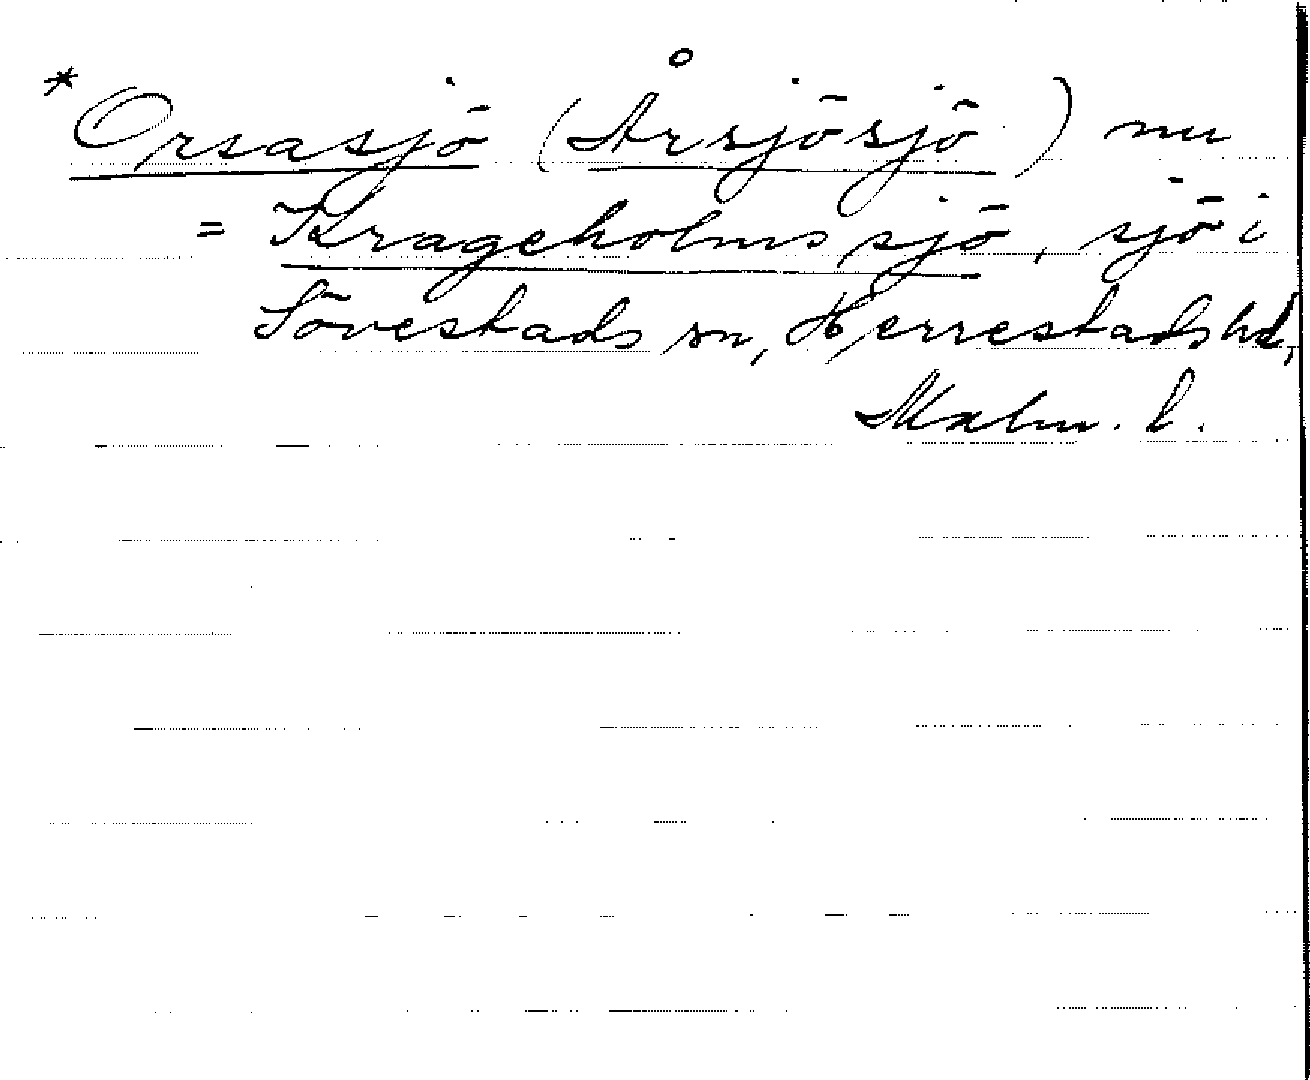 *Orsasjö (Årsjösjö) nu
= Krageholmssjö, sjö i
Sövestads sn, Herrestads hd,
Malm. l.